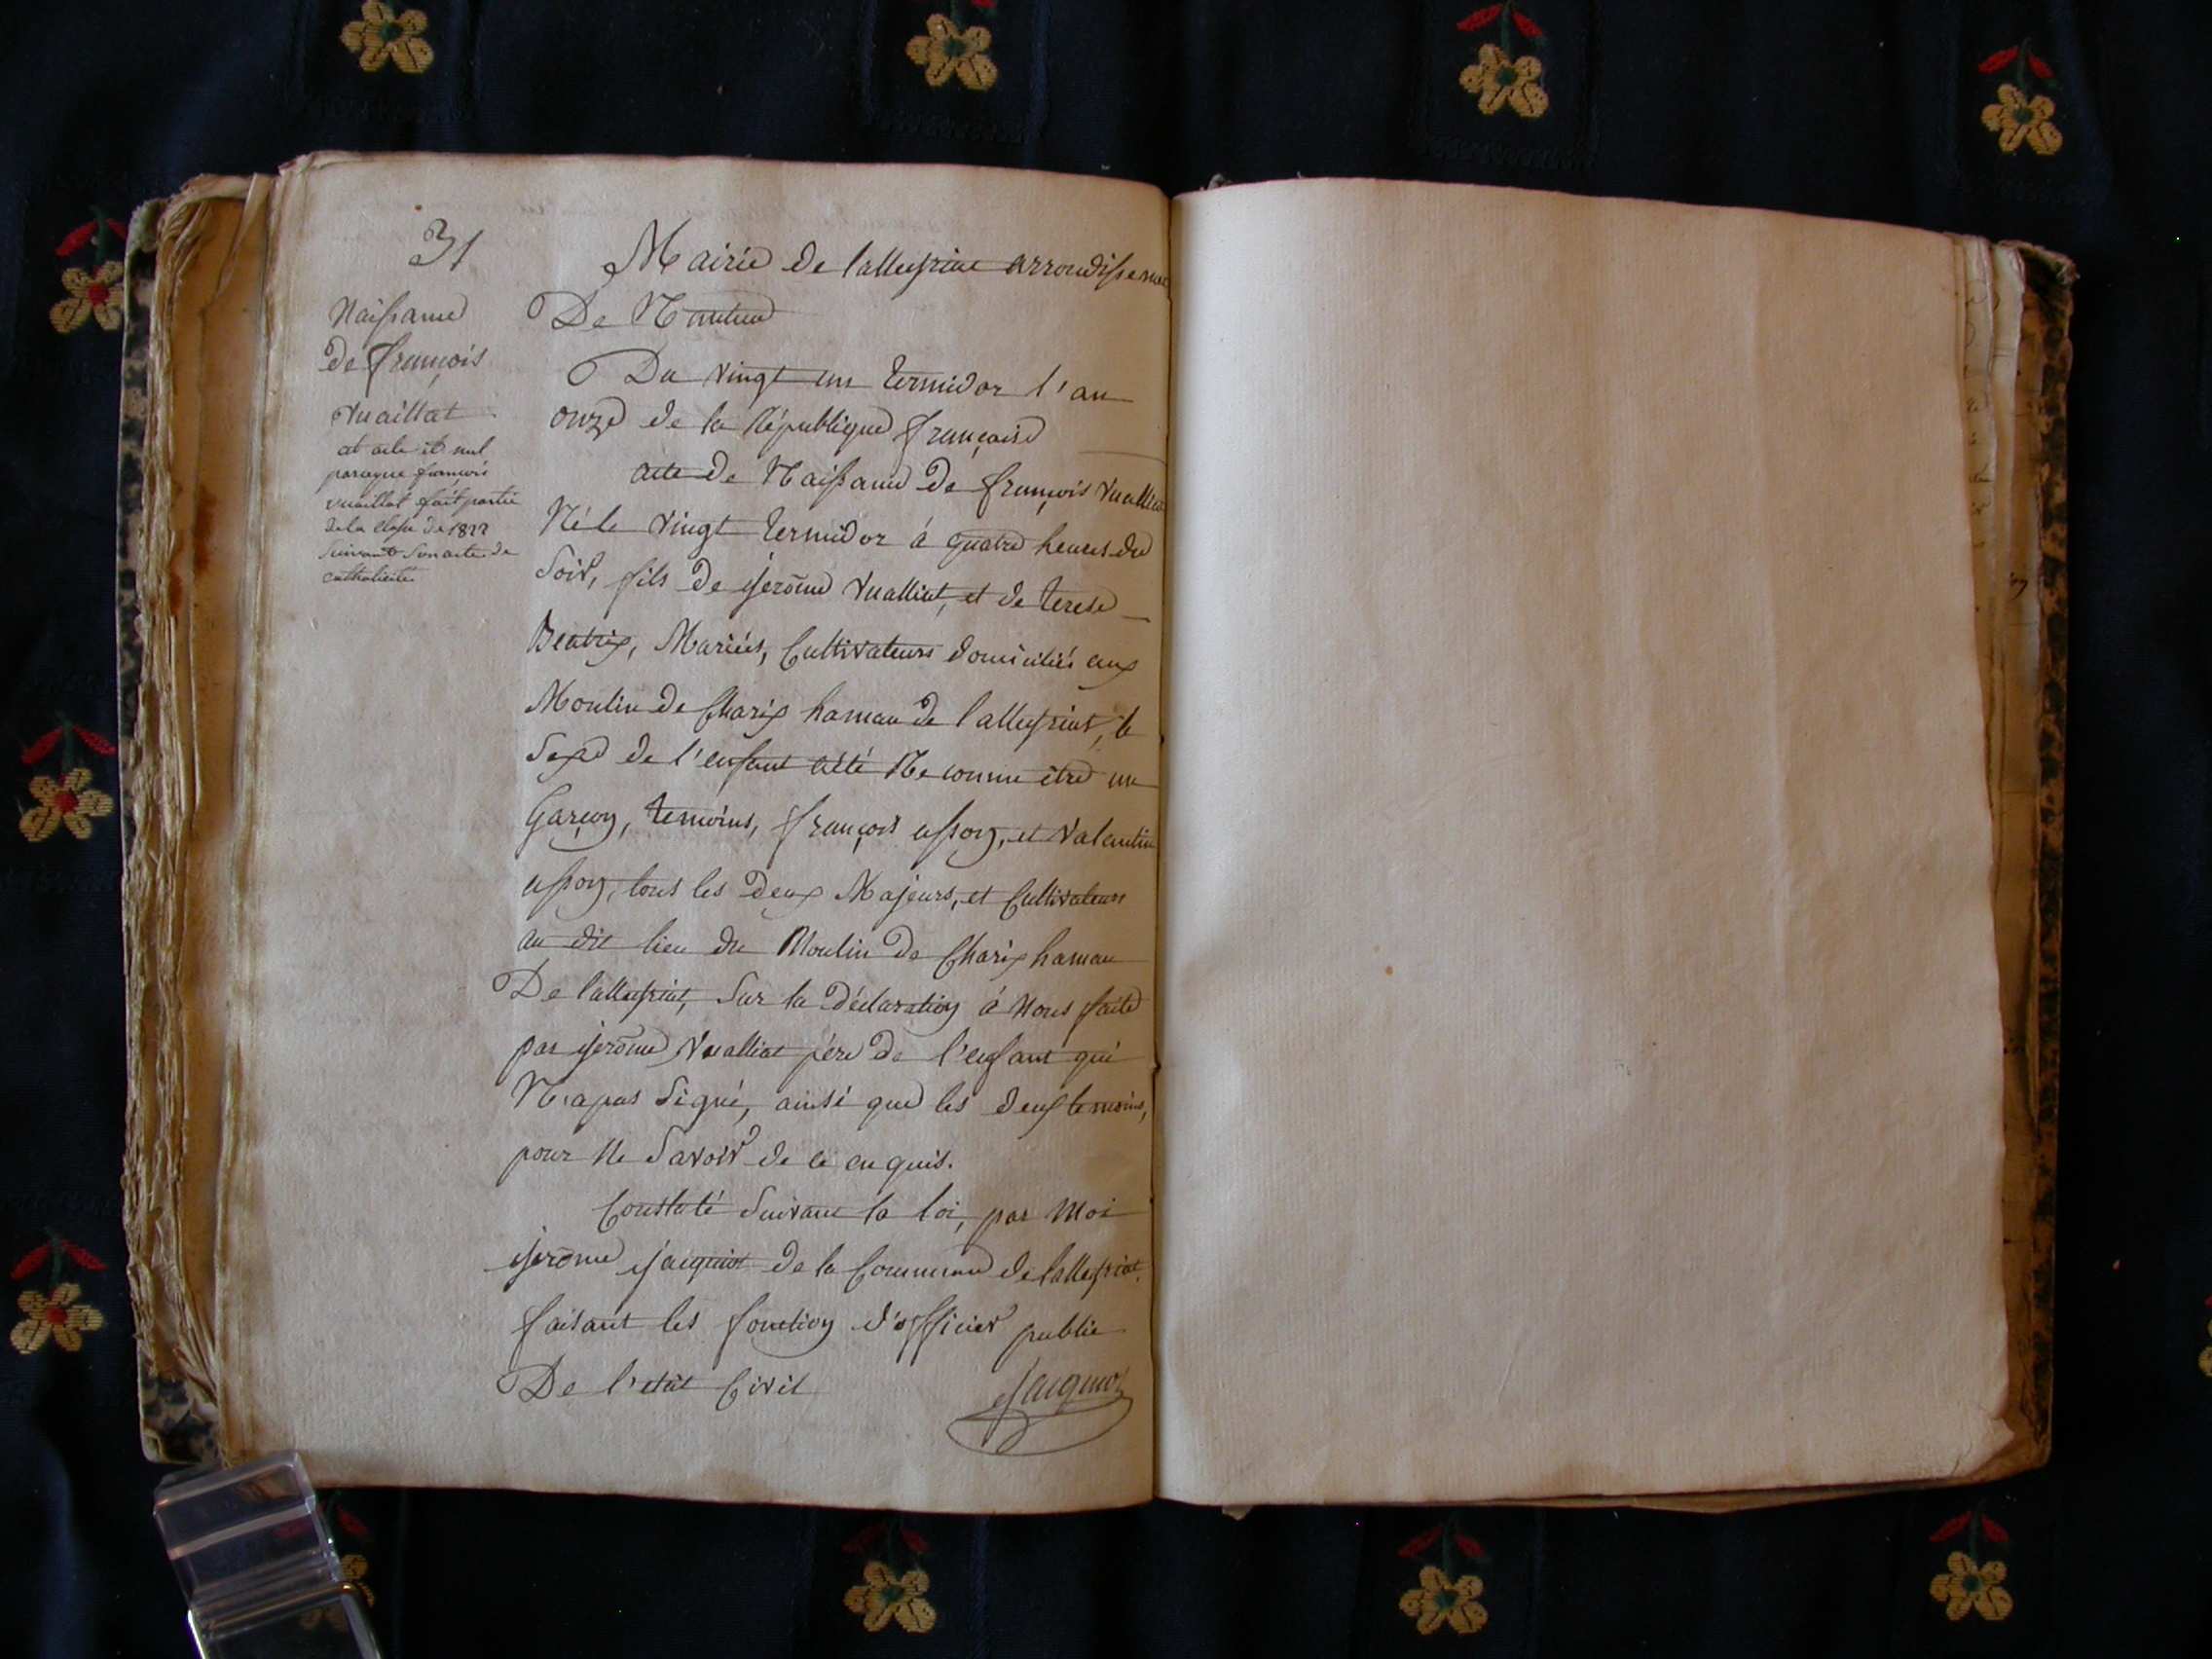 31
Naissance
de françois
Vuaillat
cet acte est nul
parceque françois
vuaillat fait partie
de la classe de 1822
suivant son acte de
catholicité
Mairie de lalleyriat arrondissement
De Nantua
Du vingt un termidor l'an
onze de la République française
acte de Naissance de françois Vualliat
Né le vingt termidor à quatre heures du
Soir, fils de jerôme Vualliat, et de terese
Beatrix, Mariés, Cultivateurs domiciliés aux
Moulin de Charix hamau de lalleyriat, le
Sexe de l'enfant a été Reconnu être un
Garçon, temoins, françois , et Valentin
tous les deux Majeurs, et Cultivateurs
au dit lieu du Moulin de Charix hamau
De lalleyriat, Sur la déclaration à Nous faite
par jerôme Vualliat père de l'enfant qui
N'a pas Signé, ainsi que les deux temoins,
pour Ne Savoir de ce enquis.
Constaté Suivant la loi, par Moi
jerôme jacquiot de la Commune de lalleyriat,
faisant les fonction d'officier public
De l'etat Civil
Jacquiot